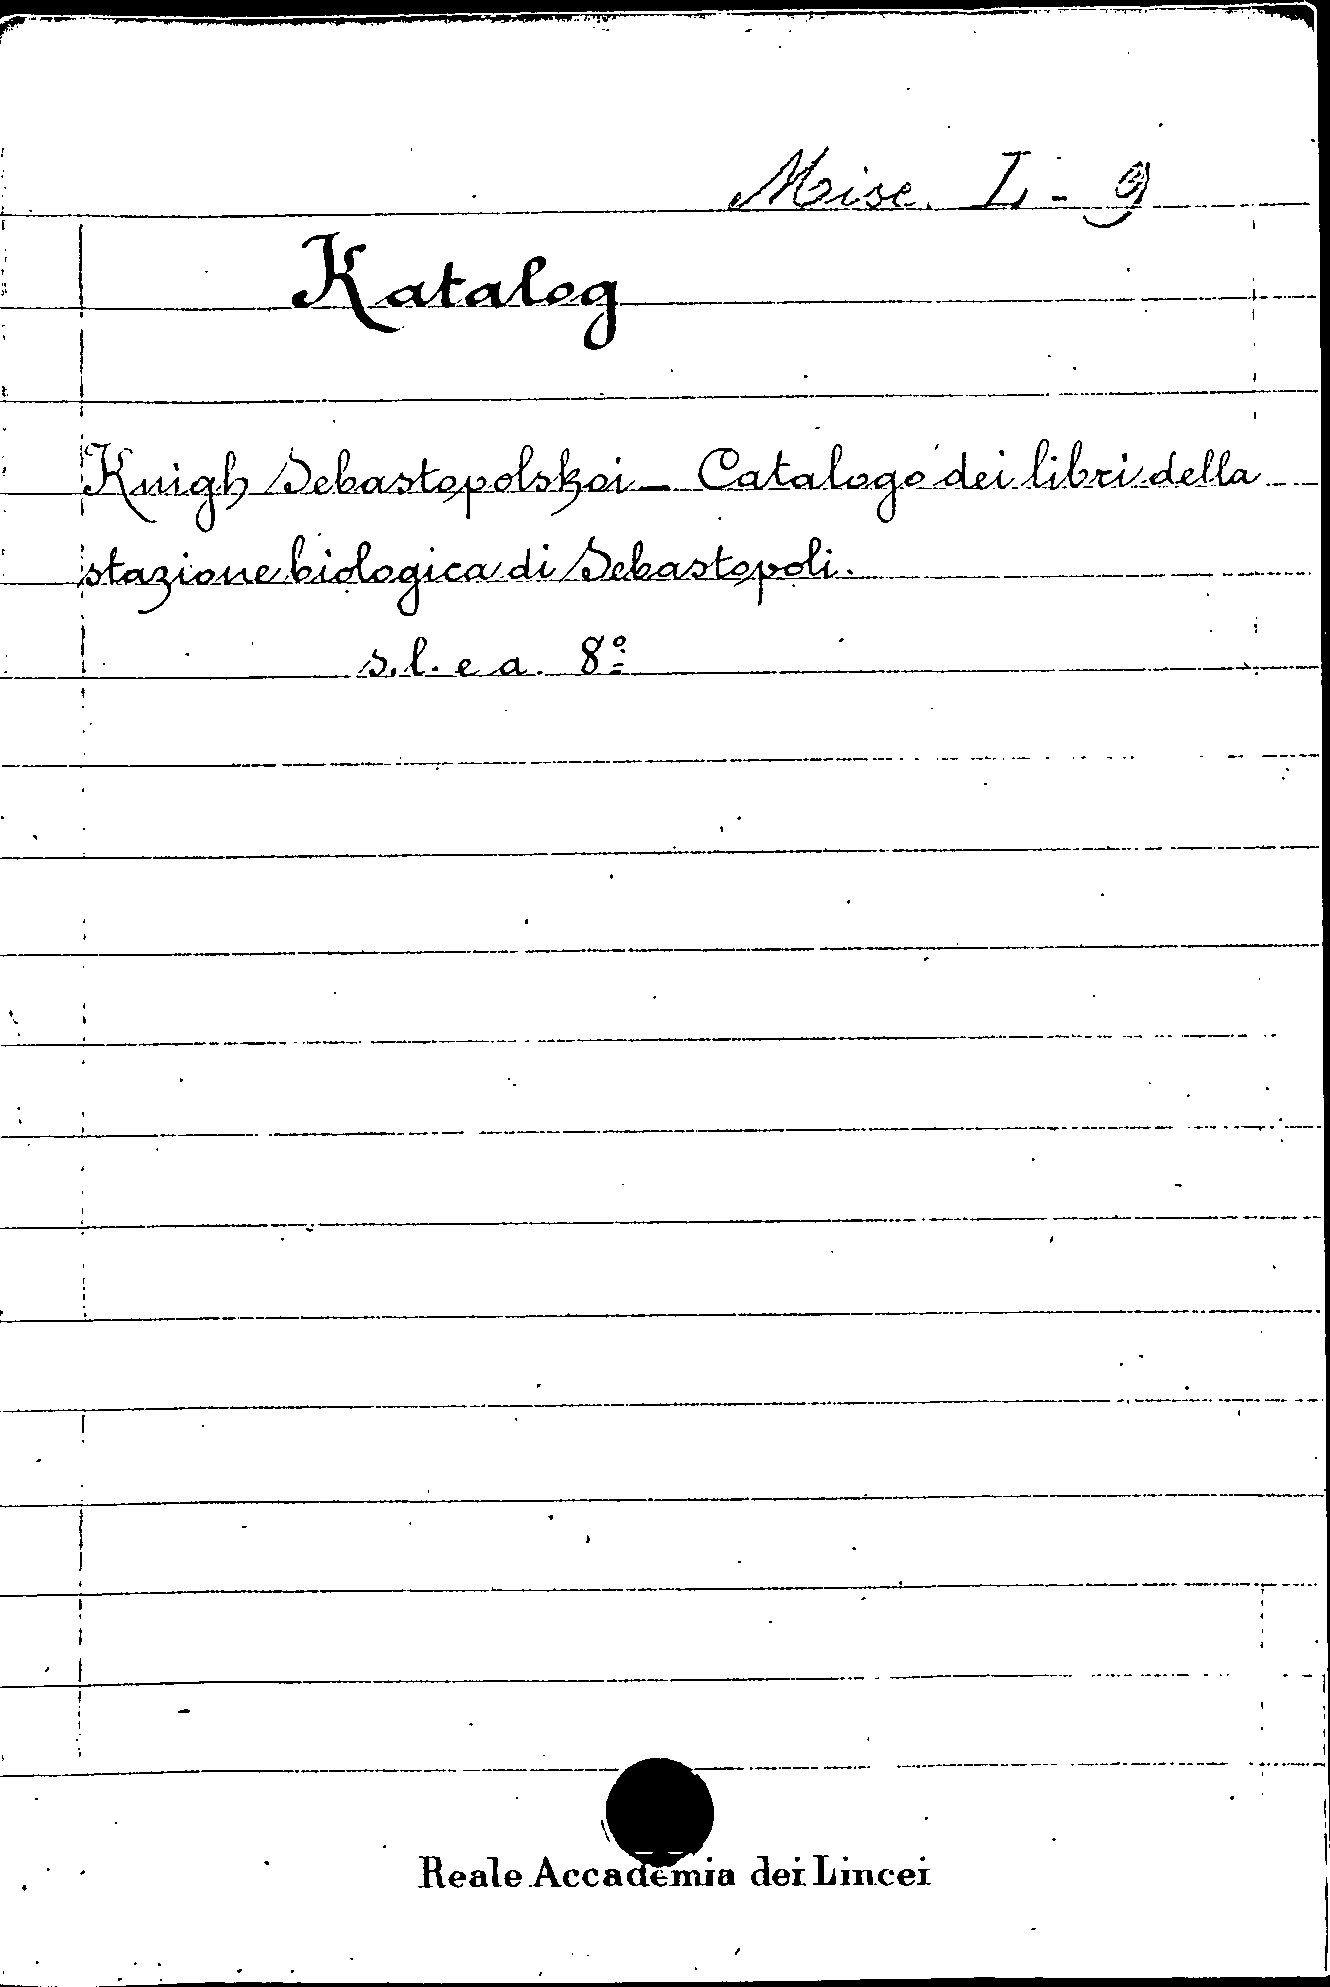 Misc. L - 9
Katalog
Knigh Sebastopolskoi - Catalogo dei libri della
stazione biologica di Sebastopoli.
s. l. e a. 8º
Reale Accademia dei Lincei